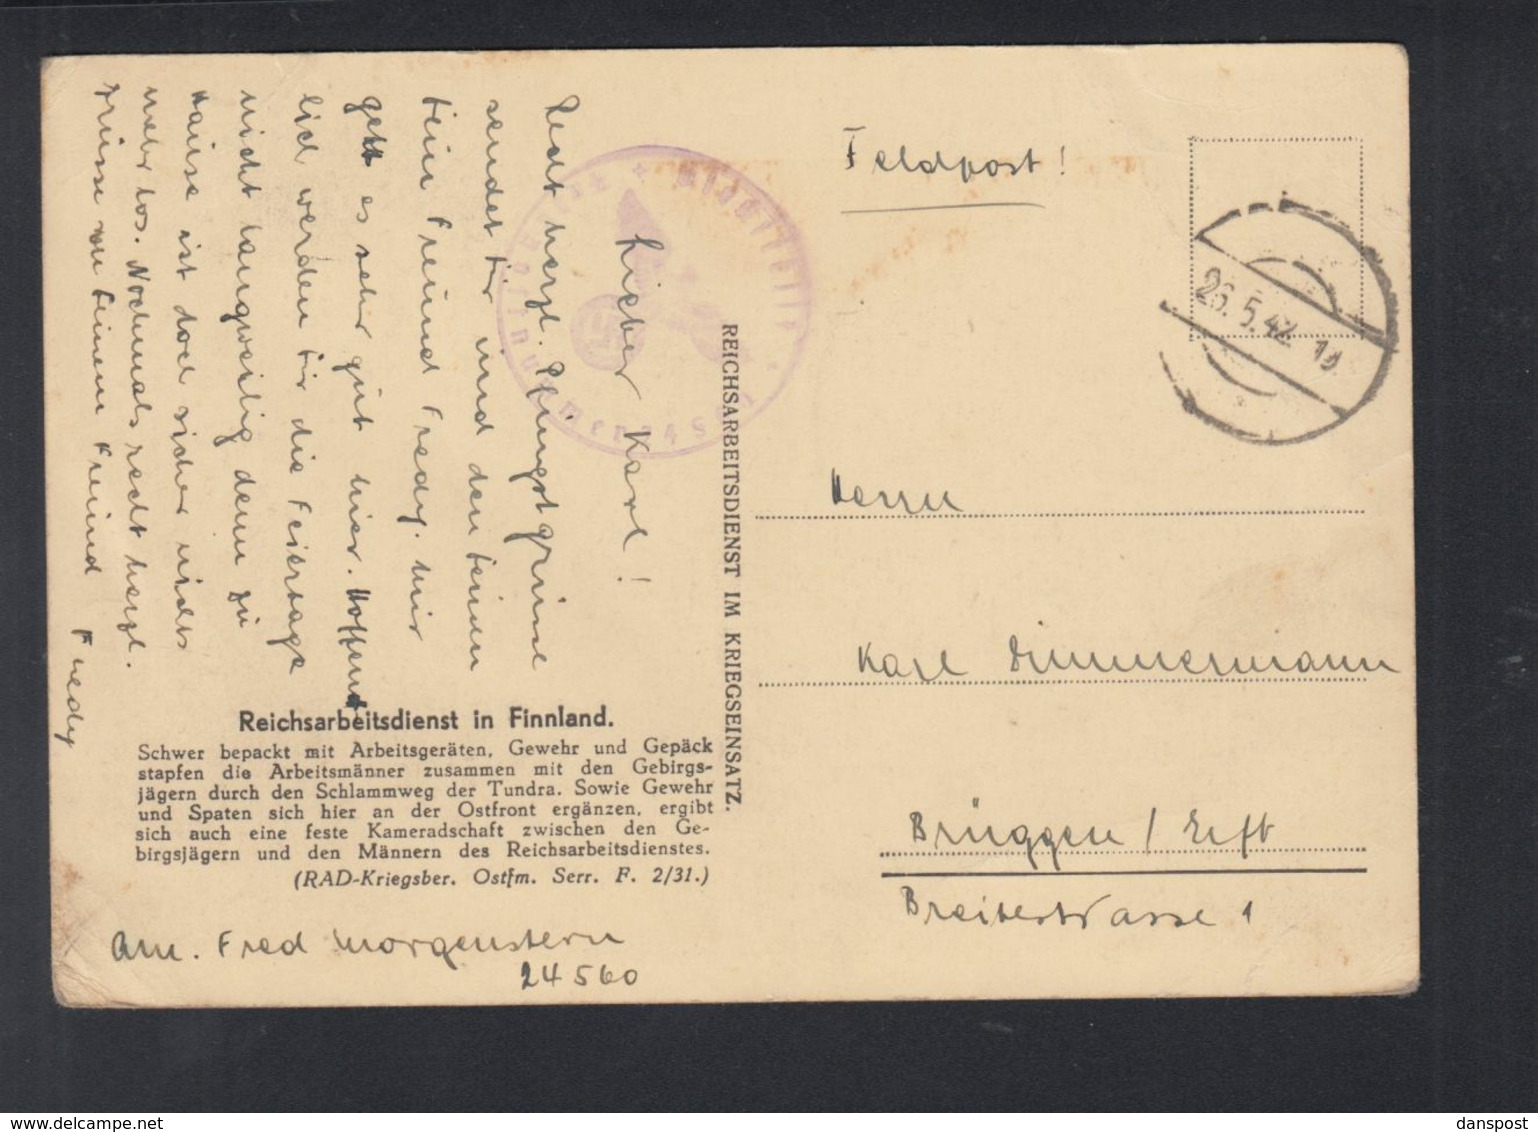 Feldpost!
26.5.42
Lieber Karl!
Recht herzl. Pfingstgrüße
sendet Dir und den Deinen
Dein Freund Fredy. Mir
geht es sehr gut hier. Hoffent
lich werden Dir die Feiertage
nicht langweilig denn zu
Hause ist doch sicher nichts
mehr los. Nochmals recht herzl.
Grüsse von Deinem Freund Fredy
REICHSARBEITSDIENST IM KRIEGSEINSATZ.
Herrn
Karl Zimmermann
Brüggen / Erft
Breitestrasse 1
Reichsarbeitsdienst in Finnland.
Schwer bepackt mit Arbeitsgeräten, Gewehr und Gepäck
stapfen die Arbeitsmänner zusammen mit den Gebirgs-
jägern durch den Schlammweg der Tundra. Sowie Gewehr
und Spaten sich hier an der Ostfront ergänzen, ergibt
sich auch eine feste Kameradschaft zwischen den Ge-
birgsjägern und den Männern des Reichsarbeitsdienstes.
(RAD-Kriegsber. Ostfm. Serr. F. 2/31.)
Am. Fred Morgenstern
24560
danspost